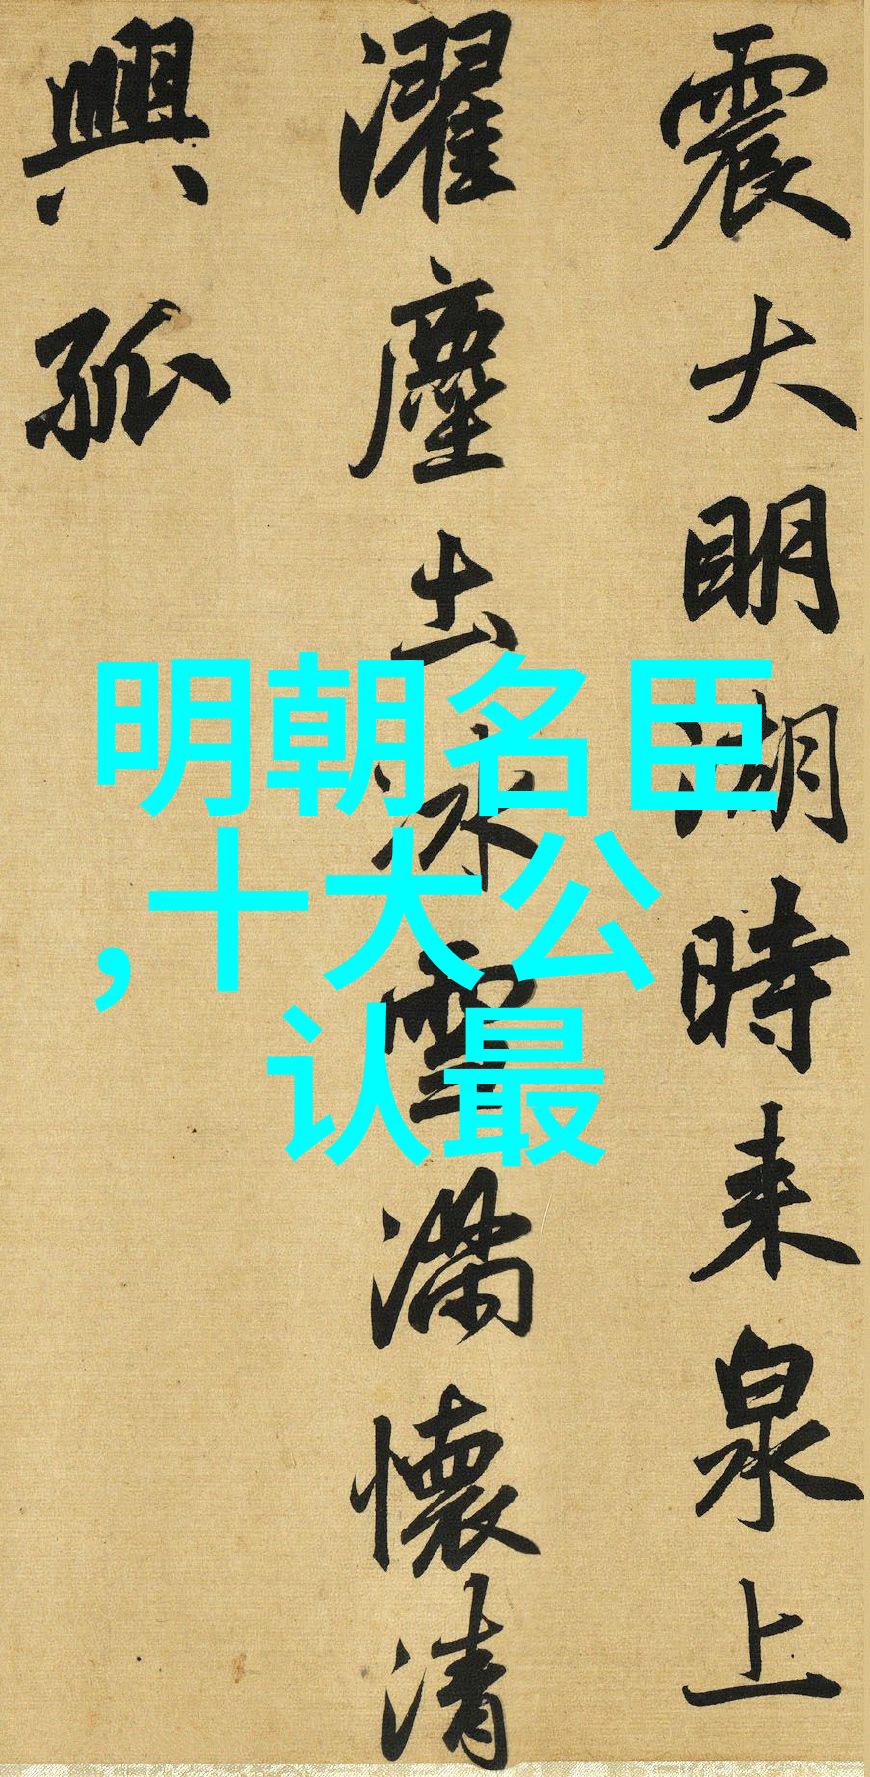 震大明湖時来泉上
濯塵土冰雪滿懷清
興孤
明朝名臣
,十大公
认最